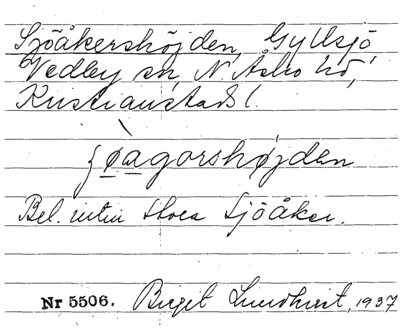 Sjöåkershöjden, Gyllsjö
Vedby sn, N Åsbo hd,
Kristianstads l.
ʃøagorshøjdan
Bel. intin Stora Sjöåker.
Nr 5506. Birgit Lundkvist, 1937